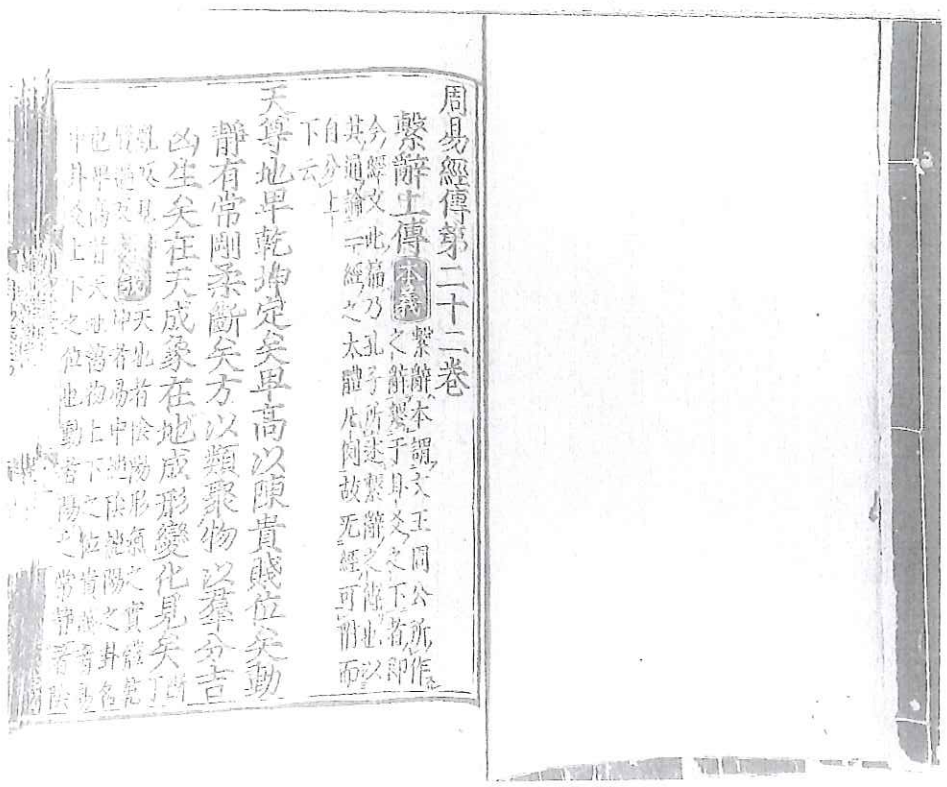 周易經傳第二十二卷
繫辭上傳本義繫辭本謂文王周公所作
之辭繫于卦爻之下者即
今經文此篇乃孔子所述繫辭之傳也以
其通論一經之大體凡例故无經可附而
自分上
下云
天尊地卑乾坤定矣卑高以陳貴賤位矣動
靜有常剛柔斷矣方以類聚物以羣分吉
凶生矣在天成象在地成形變化見矣斷丁
亂反見
天地者陰陽形氣之實體乾
坤者易中純陰純陽之卦名
也卑高者天地萬物上下之位貴賤者易
中卦爻上下之位也動者陽之常靜者陰